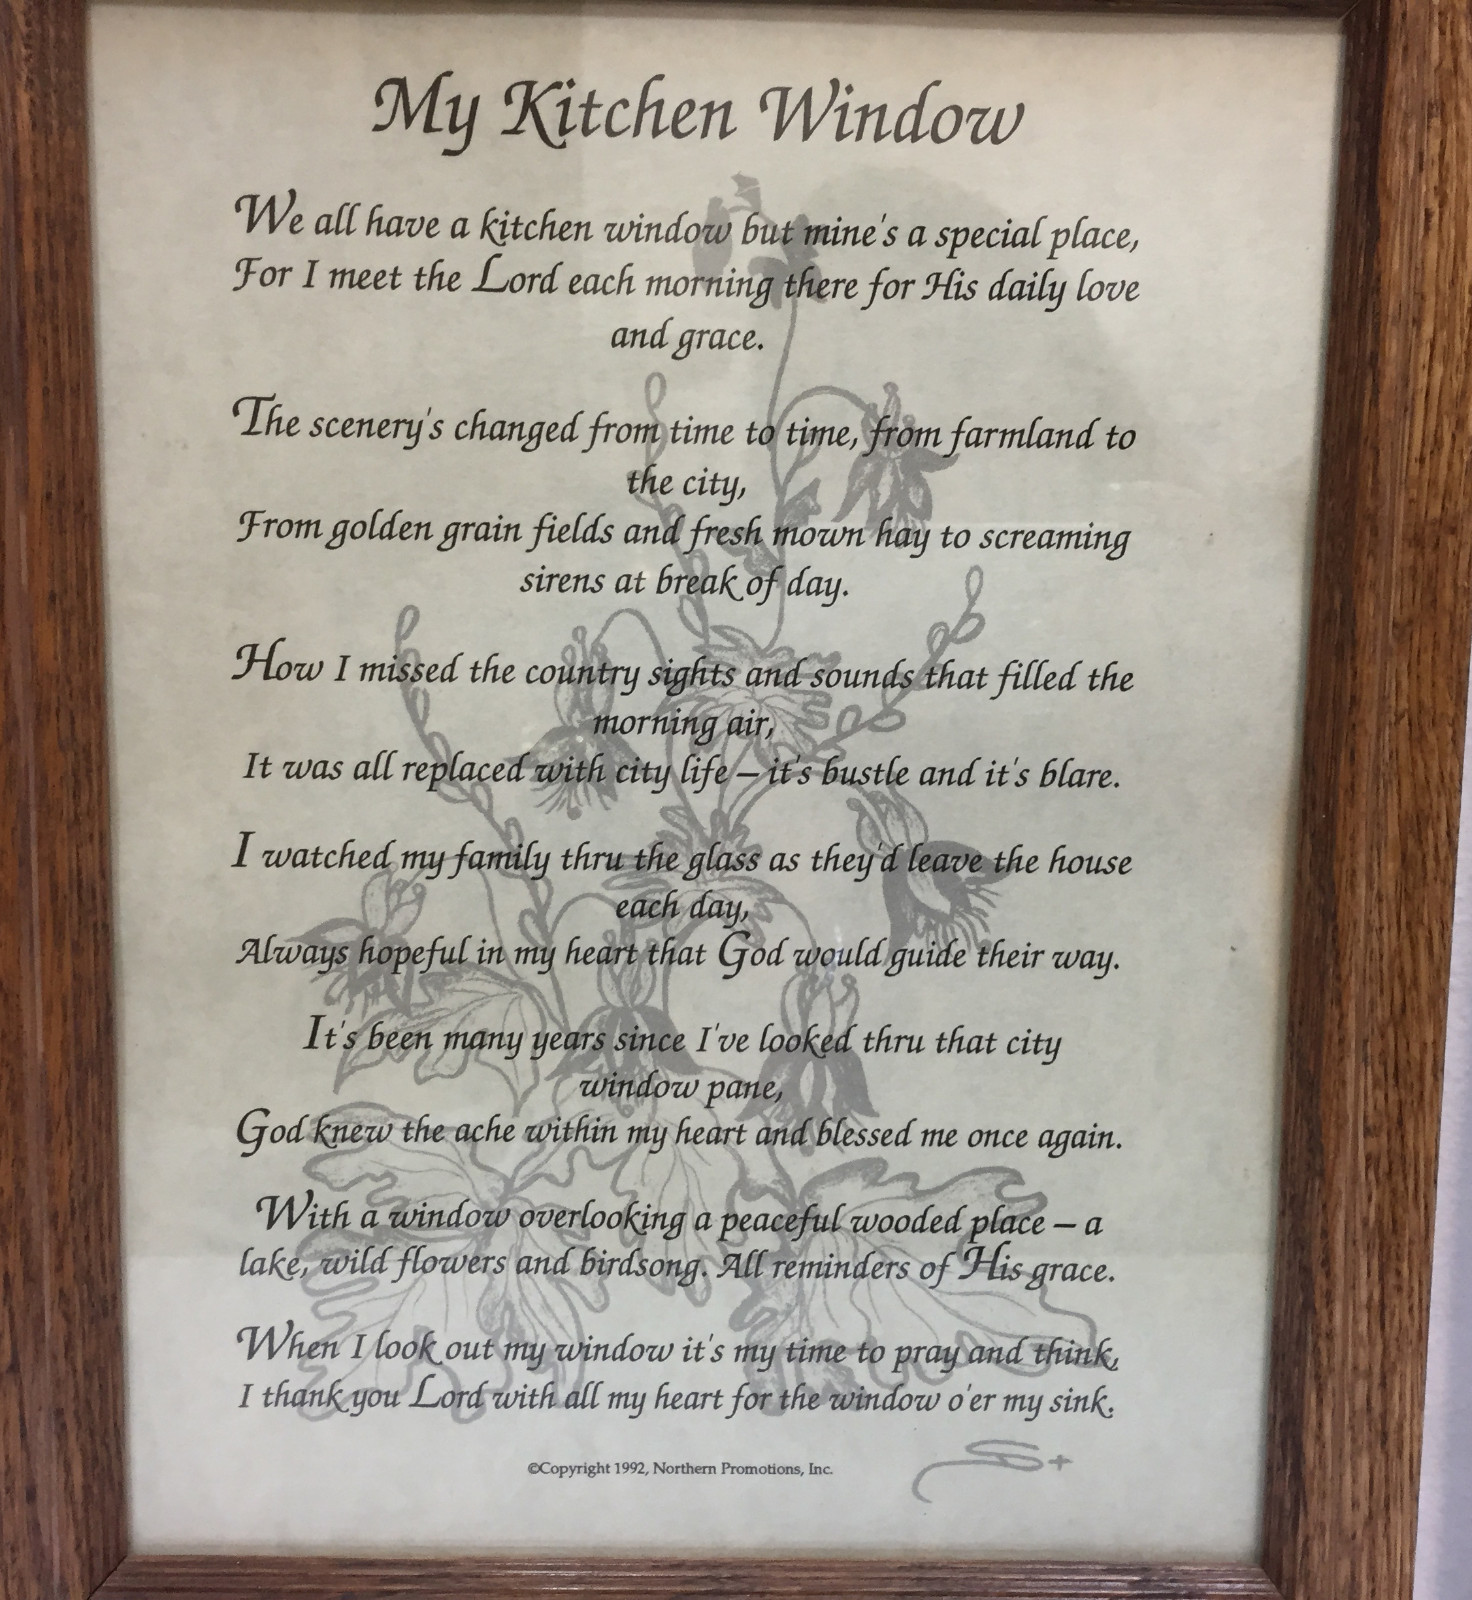 My Kitchen Window
We all have a kitchen window but mine's a special place,
For I meet the Lord each morning there for His daily love
and grace.
The scenery's changed from time to time, from farmland to
the city,
From golden grain fields and fresh mown hay to screaming
sirens at break of day.
How I missed the country sights and sounds that filled the
morning air,
It was all replaced with city life – it's bustle and it's blare.
I watched my family thru the glass as they'd leave the house
each day,
Always hopeful in my heart that God would guide their way.
It's been many years since I've looked thru that city
window pane,
God knew the ache within my heart and blessed me once again.
With a window overlooking a peaceful wooded place – a
lake, wild flowers and birdsong. All reminders of His grace.
When I look out my window it's my time to pray and think,
I thank you Lord with all my heart for the window o'er my sink.
©Copyright 1992, Northern Promotions, Inc.